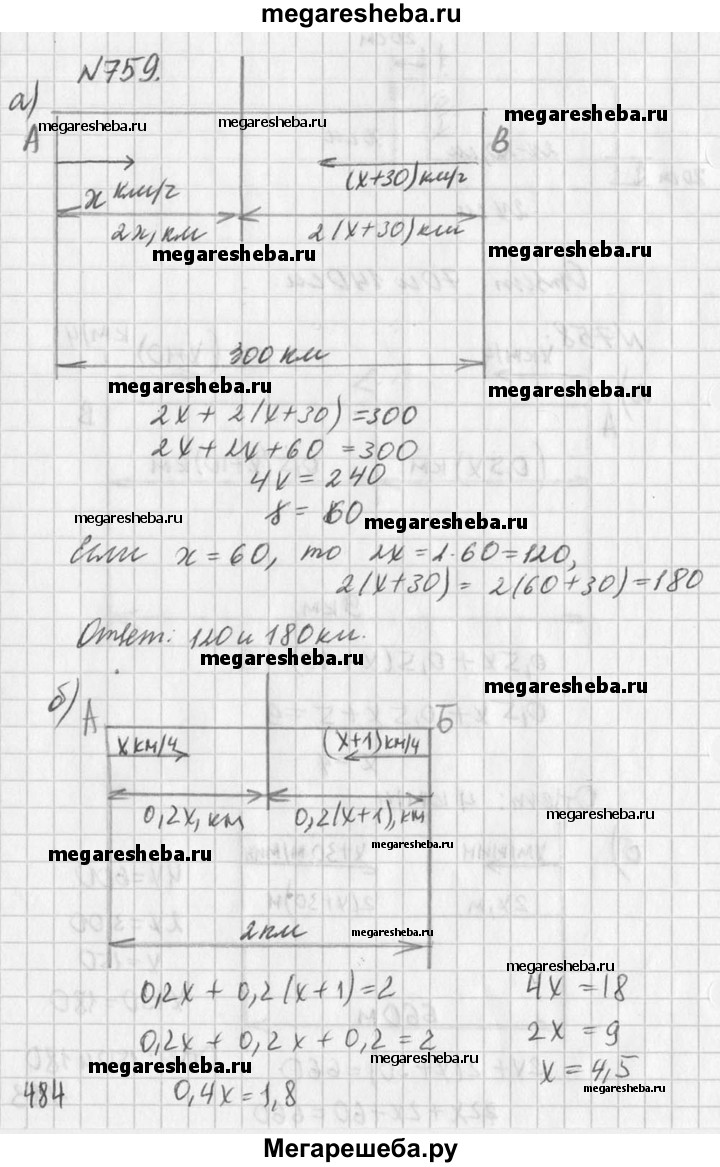 megaresheba.ru
N759.
а)
megaresheba.ru megaresheba.ru megaresheba.ru
А В
x км/г (x+30) км/г
2x, км 2(x+30) км
megaresheba.ru megaresheba.ru
300 км
megaresheba.ru megaresheba.ru
2x + 2(x+30) = 300
2x + 2x + 60 = 300
4x = 240
x = 60
megaresheba.ru megaresheba.ru
Если x = 60, то 2x = 2·60 = 120,
2(x+30) = 2(60+30) = 180
Ответ: 120 и 180 км.
megaresheba.ru
megaresheba.ru
б) А Б
x км/ч (x+1) км/ч
0,2x, км 0,2(x+1), км
megaresheba.ru
megaresheba.ru megaresheba.ru
2 км megaresheba.ru
megaresheba.ru
0,2x + 0,2(x+1) = 2 4x = 18
0,2x + 0,2x + 0,2 = 2 2x = 9
megaresheba.ru megaresheba.ru x = 4,5
484 0,4x = 1,8 megaresheba.ru
Мегарешеба.ру